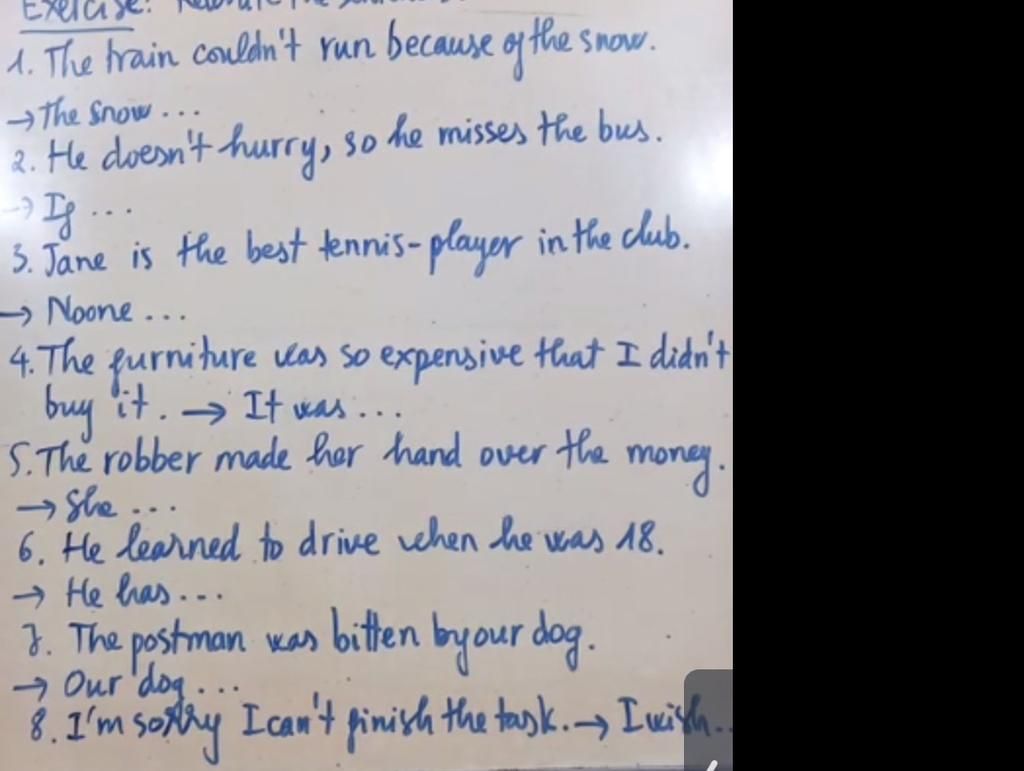 Exercise:
1. The train couldn't run because of the snow.
→ The snow ...
2. He doesn't hurry, so he misses the bus.
→ If ...
3. Jane is the best tennis-player in the club.
→ Noone ...
4. The furniture was so expensive that I didn't
buy it. → It was ...
5. The robber made her hand over the money.
→ She ...
6. He learned to drive when he was 18.
→ He has ...
7. The postman was bitten by our dog.
→ Our dog ...
8. I'm sorry I can't finish the task. → I wish ..